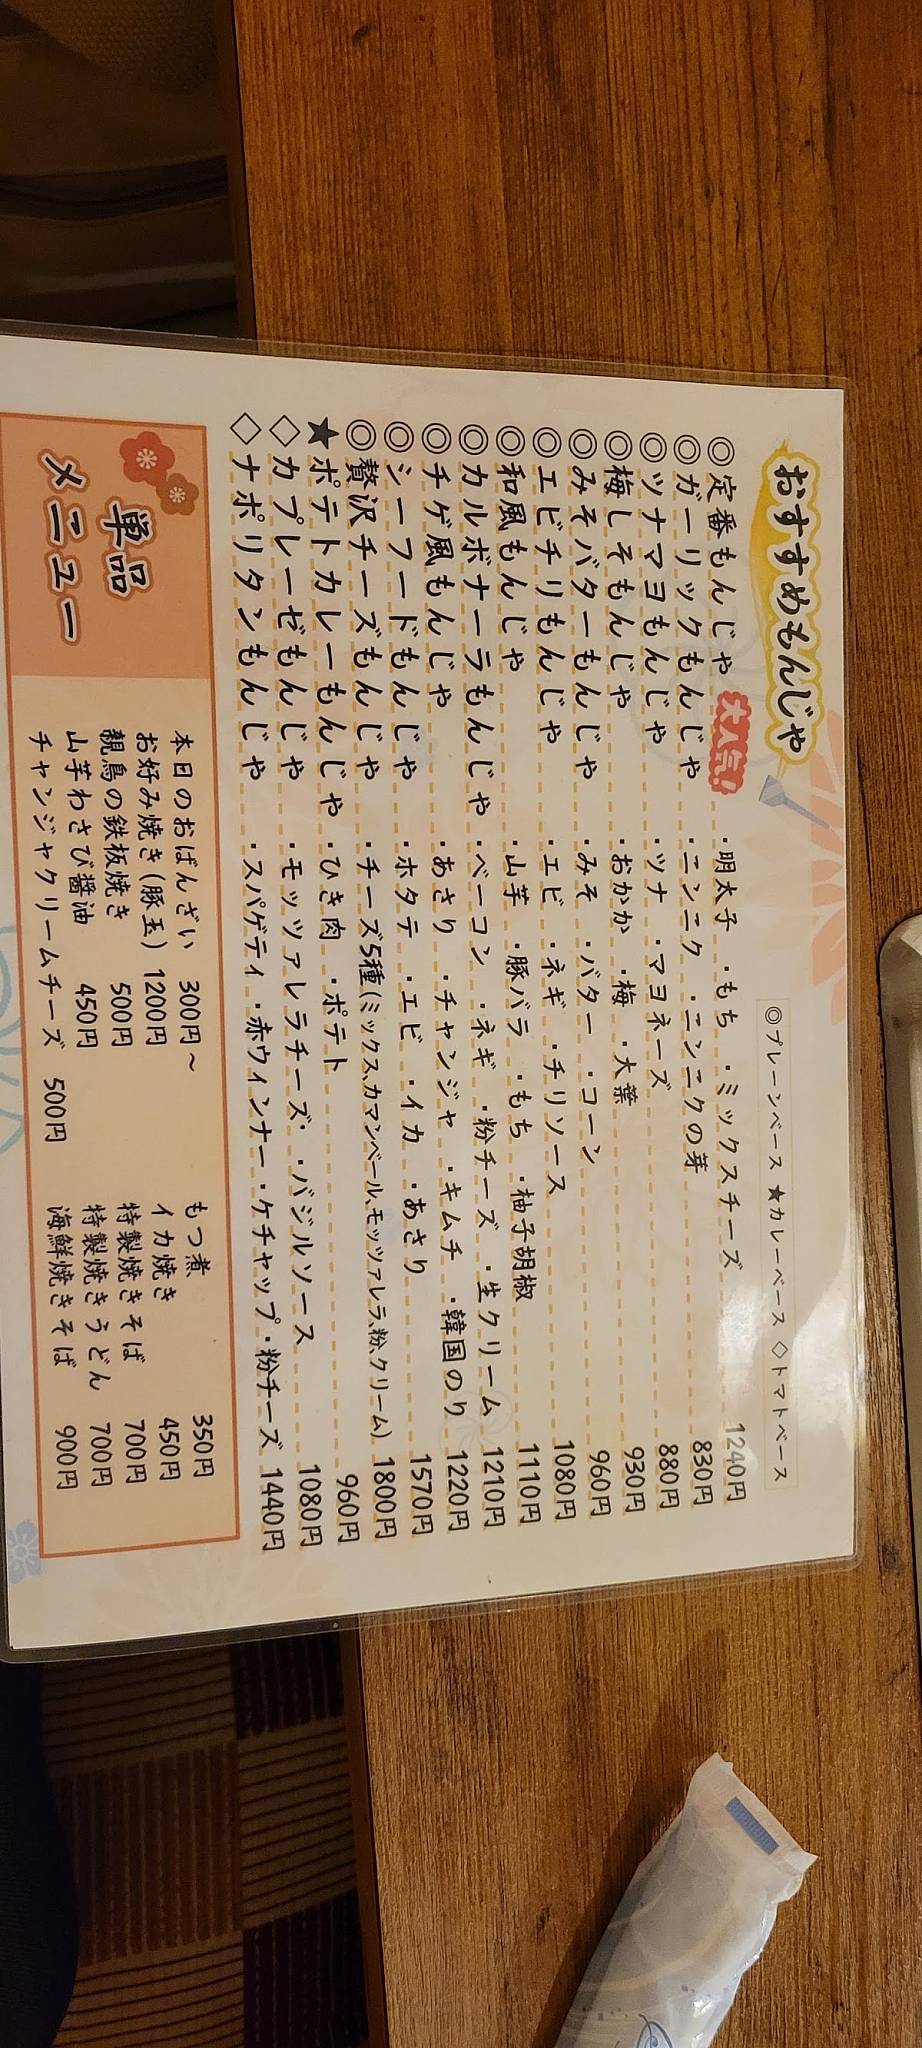 おすすめもんじゃ
◎プレーンベース ★カレーベース ◇トマトベース
◎定番もんじゃ 大人気! ・明太子 ・もち ・ミックスチーズ 1240円
◎ガーリックもんじゃ ・ニンニク ・ニンニクの芽 830円
◎ツナマヨもんじゃ ・ツナ ・マヨネーズ 880円
◎梅しそもんじゃ ・おかか ・梅 ・大葉 930円
◎みそバターもんじゃ ・みそ ・バター ・コーン 960円
◎エビチリもんじゃ ・エビ ・ネギ ・チリソース 1080円
◎和風もんじゃ ・山芋 ・豚バラ ・もち ・柚子胡椒 1110円
◎カルボナーラもんじゃ ・ベーコン ・ネギ ・粉チーズ ・生クリーム 1210円
◎チゲ風もんじゃ ・あさり ・チャンジャ ・キムチ ・韓国のり 1220円
◎シーフードもんじゃ ・ホタテ ・エビ ・イカ ・あさり 1570円
◎贅沢チーズもんじゃ ・チーズ5種(ミックス、カマンベール、モッツァレラ、粉、クリーム) 1800円
★ポテトカレーもんじゃ ・ひき肉 ・ポテト 960円
◇カプレーゼもんじゃ ・モッツァレラチーズ・ ・バジルソース 1080円
◇ナポリタンもんじゃ ・スパゲティ ・赤ウィンナー ・ケチャップ ・粉チーズ 1440円
単品
メニュー
本日のおばんざい 300円〜
お好み焼き(豚玉) 1200円
親鳥の鉄板焼き 500円
山芋わさび醤油 450円
チャンジャクリームチーズ 500円
もつ煮 350円
イカ焼き 450円
特製焼きそば 700円
特製焼きうどん 700円
海鮮焼きそば 900円